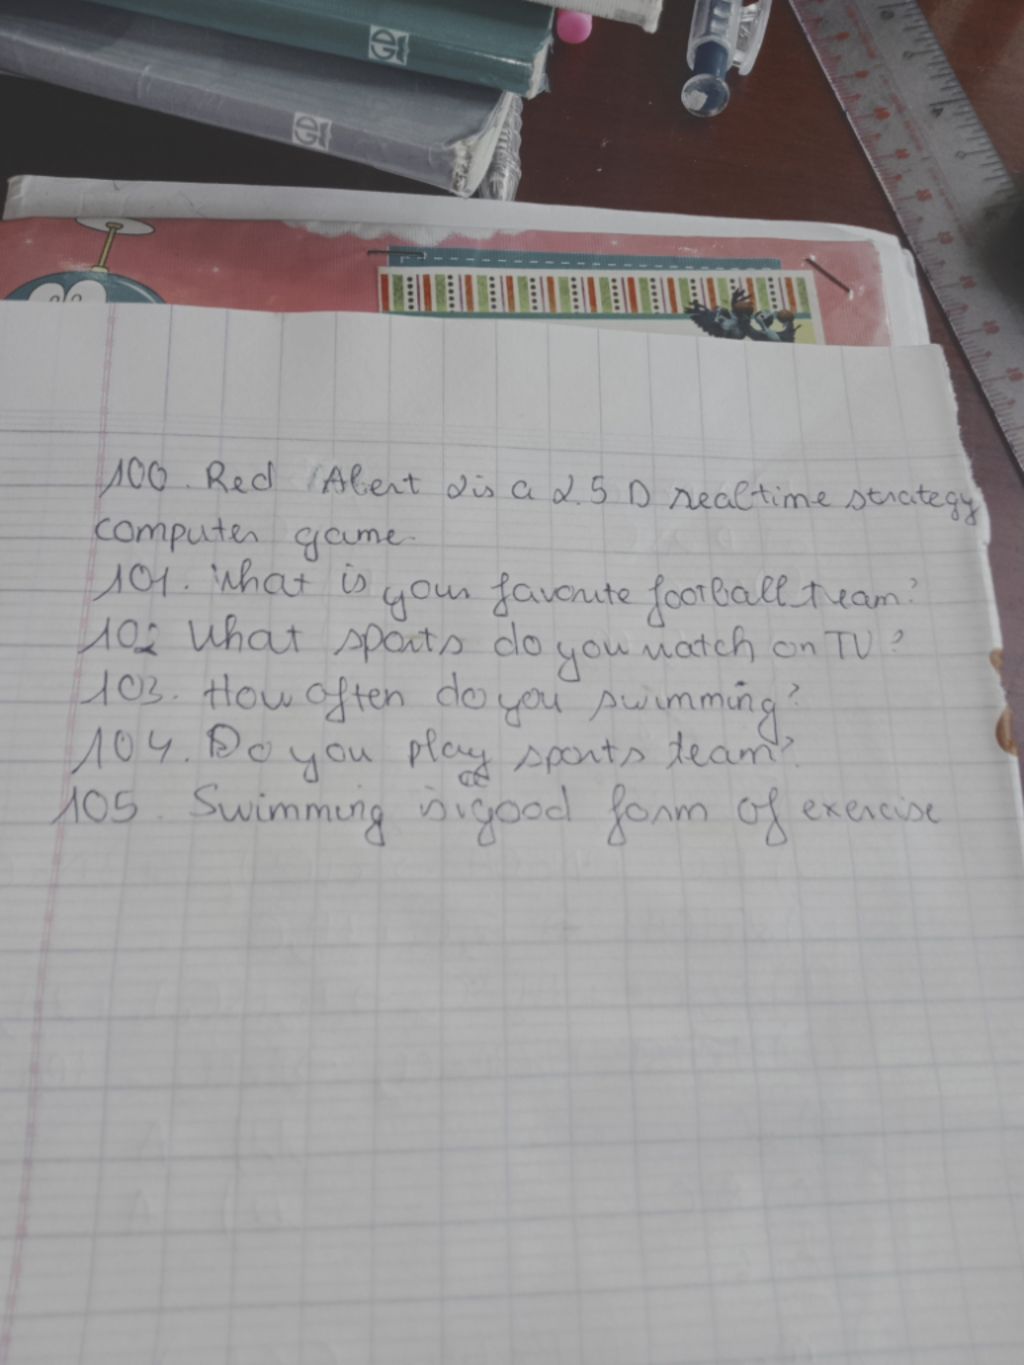 GD
GD
100. Red Alert 2 is a 2.5 D realtime strategy
computer game.
101. What is your favorite football team?
102 What sports do you watch on TV?
103. How often do you swimming?
104. Do you play sports team?
105. Swimming is a good form of exercise